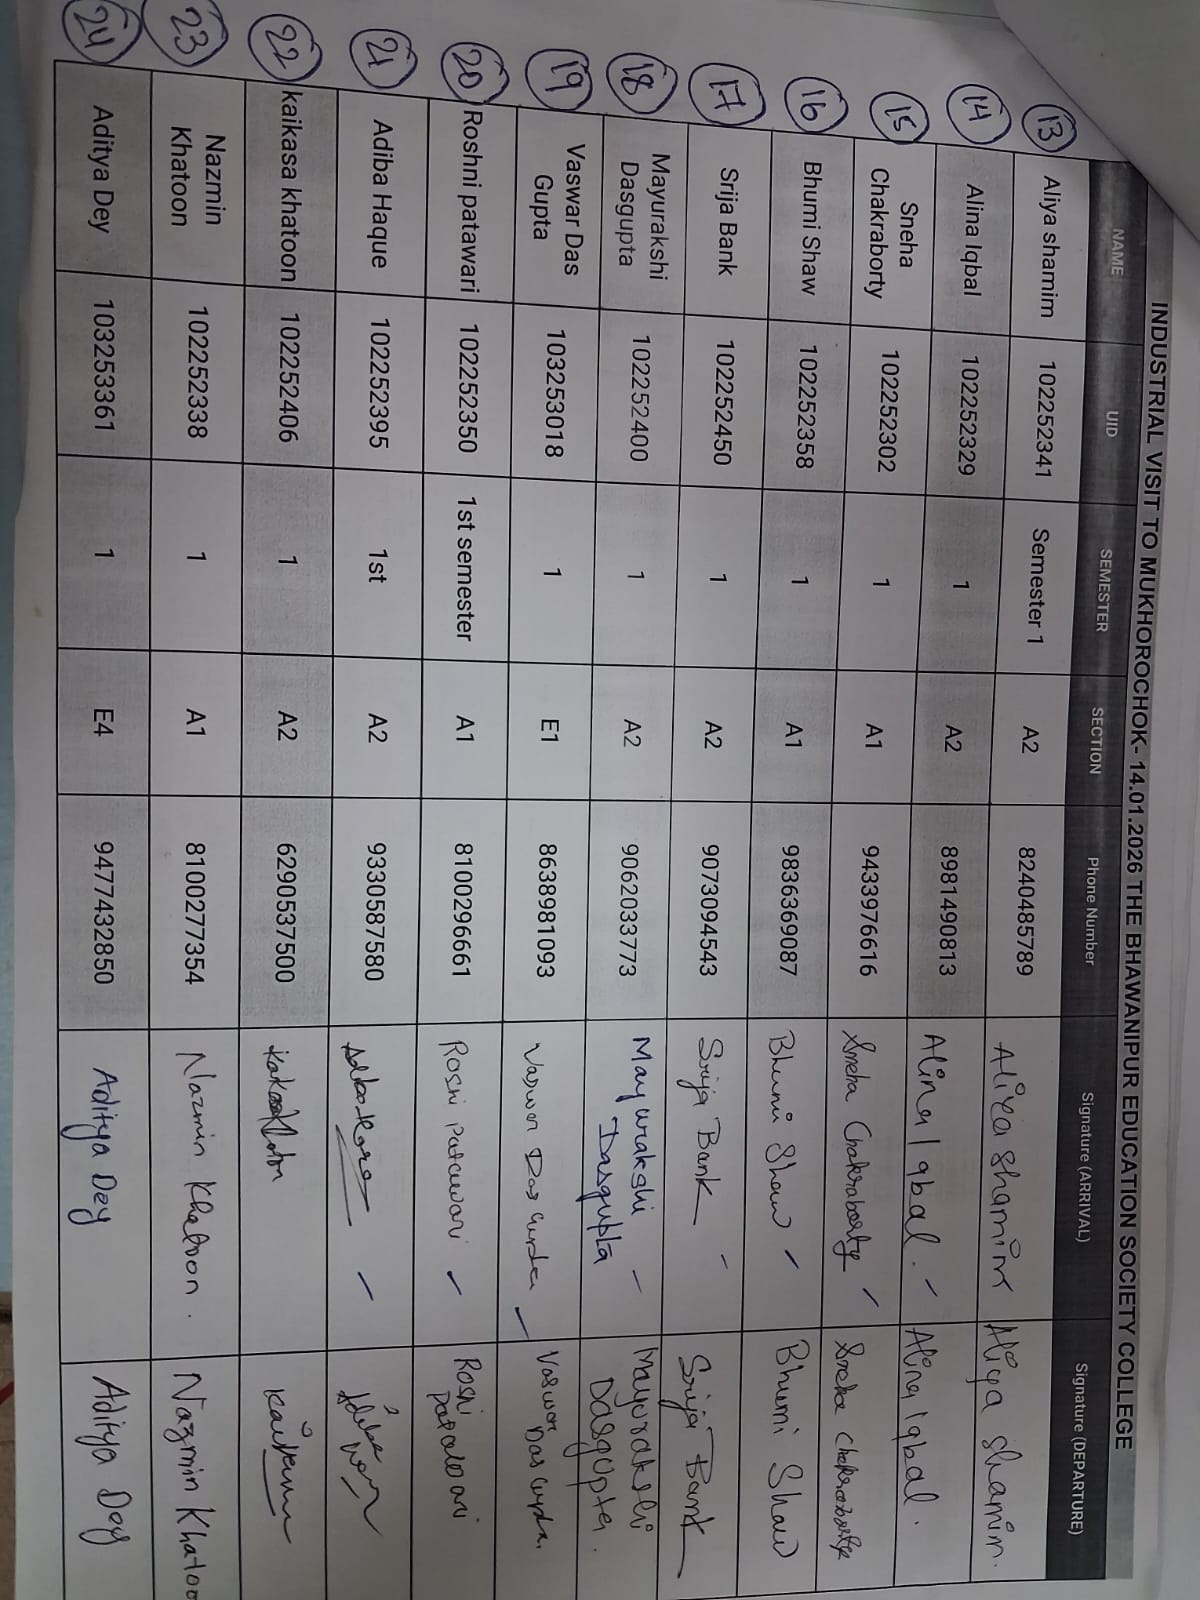 INDUSTRIAL VISIT TO MUKHOROCHOK- 14.01.2026 THE BHAWANIPUR EDUCATION SOCIETY COLLEGE
NAME UID SEMESTER SECTION Phone Number Signature (ARRIVAL) Signature (DEPARTURE)
13 Aliya shamim 102252341 Semester 1 A2 8240485789 Aliya Shamim Aliya Shamim.
14 Alina Iqbal 102252329 1 A2 8981490813 Alina Iqbal. Alina Iqbal.
15 Sneha Chakraborty 102252302 1 A1 9433976616 Sneha Chakraborty Sneha Chakraborty
16 Bhumi Shaw 102252358 1 A1 9836369087 Bhumi Shaw Bhumi Shaw
17 Srija Bank 102252450 1 A2 9073094543 Srija Bank Srija Bank
18 Mayurakshi Dasgupta 102252400 1 A2 9062033773 Mayurakshi Dasgupta Mayurakshi Dasgupta.
19 Vaswar Das Gupta 103253018 1 E1 8638981093 Vaswar Das Gupta Vaswar Das Gupta.
20 Roshni patawari 102252350 1st semester A1 8100296661 Roshni Patawari Roshni Patawari
21 Adiba Haque 102252395 1st A2 9330587580
22 kaikasa khatoon 102252406 1 A2 6290537500
23 Nazmin Khatoon 102252338 1 A1 8100277354 Nazmin Khatoon. Nazmin Khatoo
24 Aditya Dey 103253361 1 E4 9477432850 Aditya Dey Aditya Dey